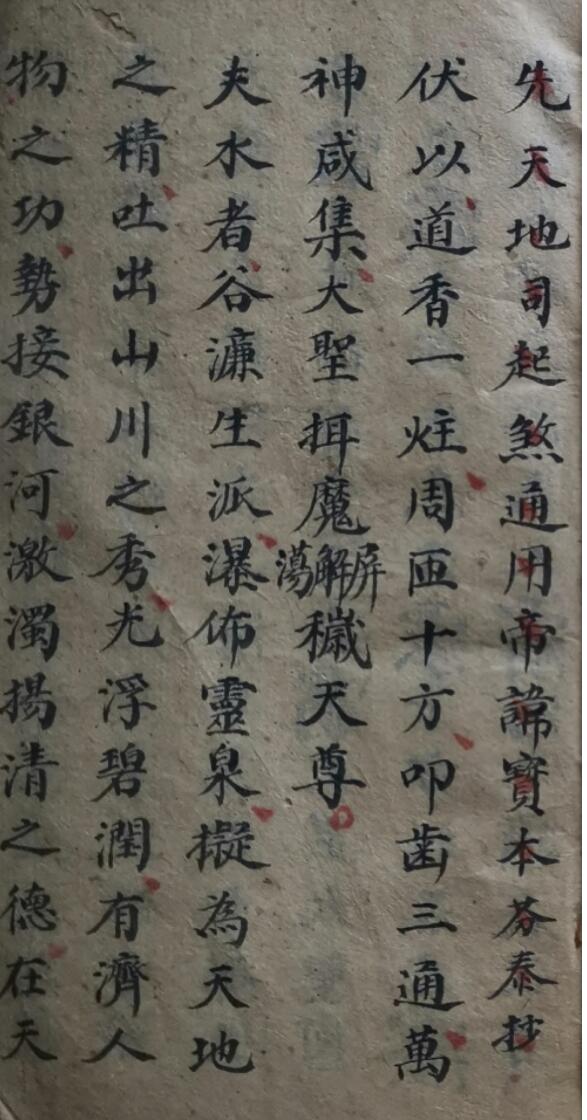 先天地司起煞通用帝諱寶本芬泰抄
伏以道香一炷周匝十方叩齒三通萬
神咸集大聖揖魔蕩解屏穢天尊
夫水者谷濂生派瀑佈靈泉擬為天地
之精吐出山川之秀光浮碧潤有濟人
物之功勢接銀河激濁揚清之德在天